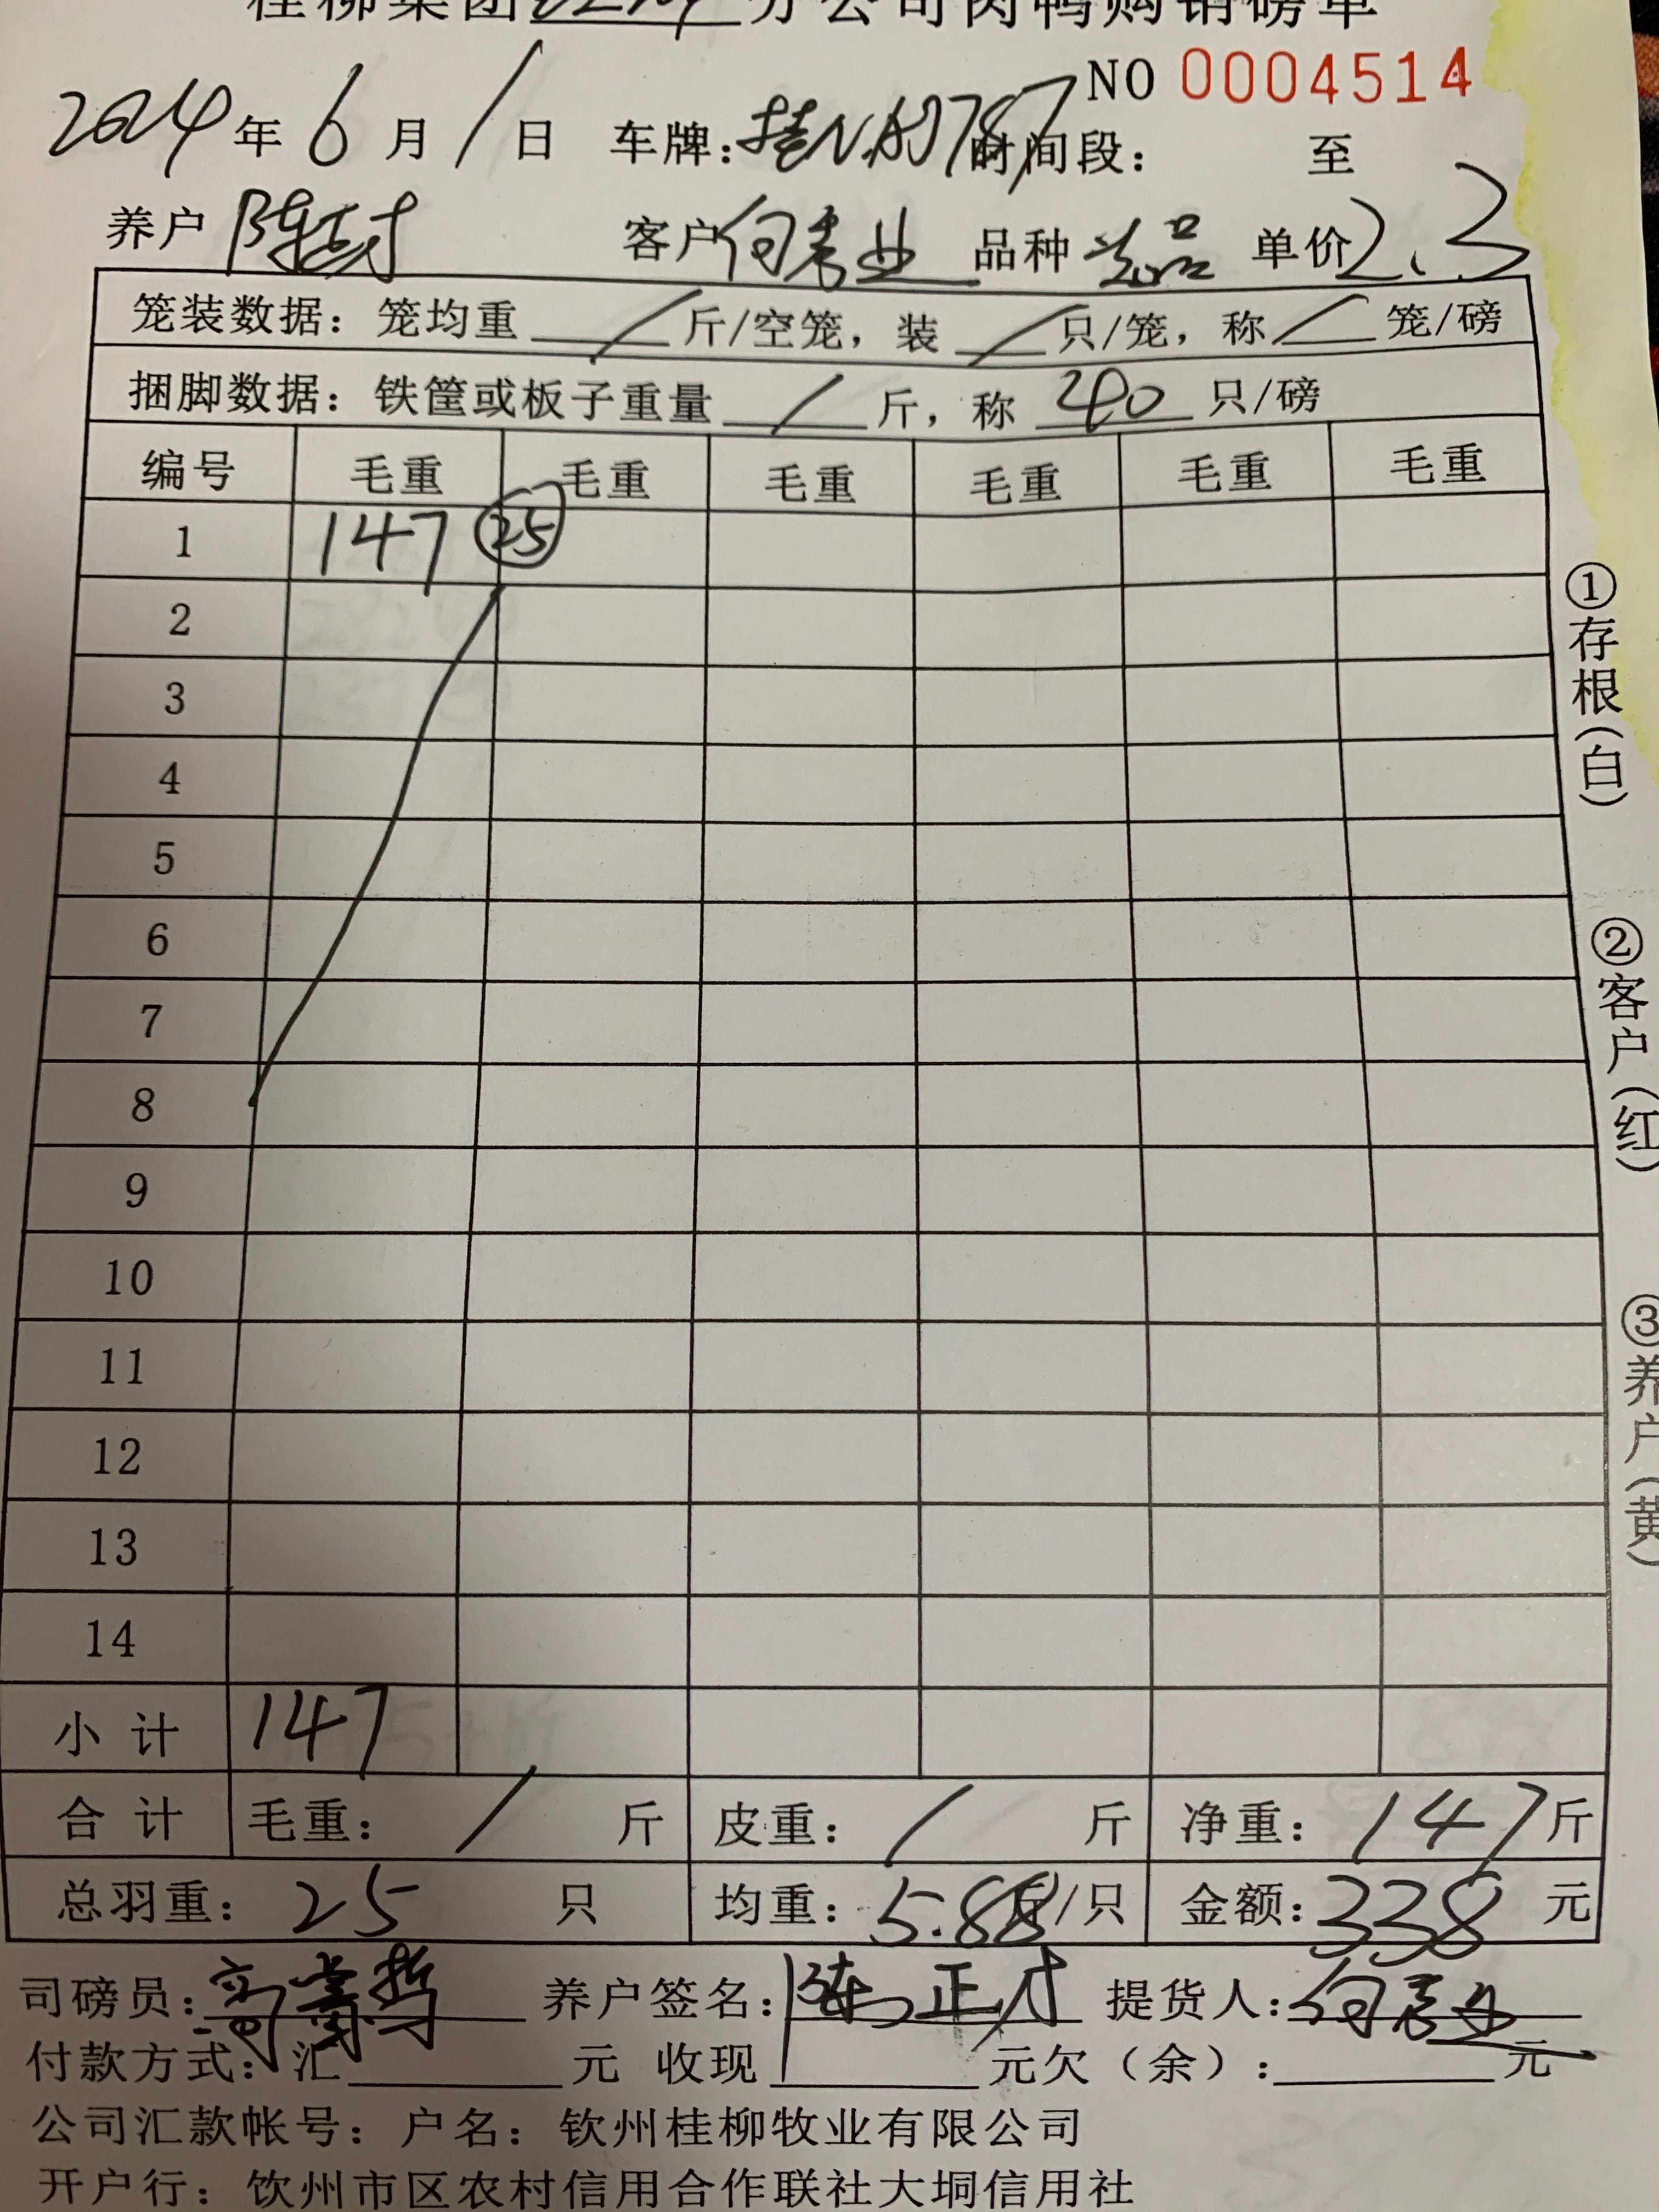 桂柳集团 分公司肉鸭购销磅单
NO 0004514
2024年6月1日 车牌: 时间段: 至
养户 陈正才 客户 何 业 品种 品 单价 2.3
笼装数据: 笼均重 / 斤/空笼, 装 / 只/笼, 称 / 笼/磅
捆脚数据: 铁筐或板子重量 / 斤, 称 40 只/磅
编号 毛重 毛重 毛重 毛重 毛重 毛重
1 147 25
2
3
4
5
6
7
8
9
10
11
12
13
14
小计 147
合计 毛重: / 斤 皮重: / 斤 净重: 147 斤
总羽重: 25 只 均重: 5.88 斤/只 金额: 338 元
司磅员: 养户签名: 陈正才 提货人: 何 业
付款方式: 汇 元 收现 元欠(余): 元
公司汇款帐号: 户名: 钦州桂柳牧业有限公司
开户行: 钦州市区农村信用合作联社大垌信用社
①存根(白)
②客户(红)
③养户(黄)